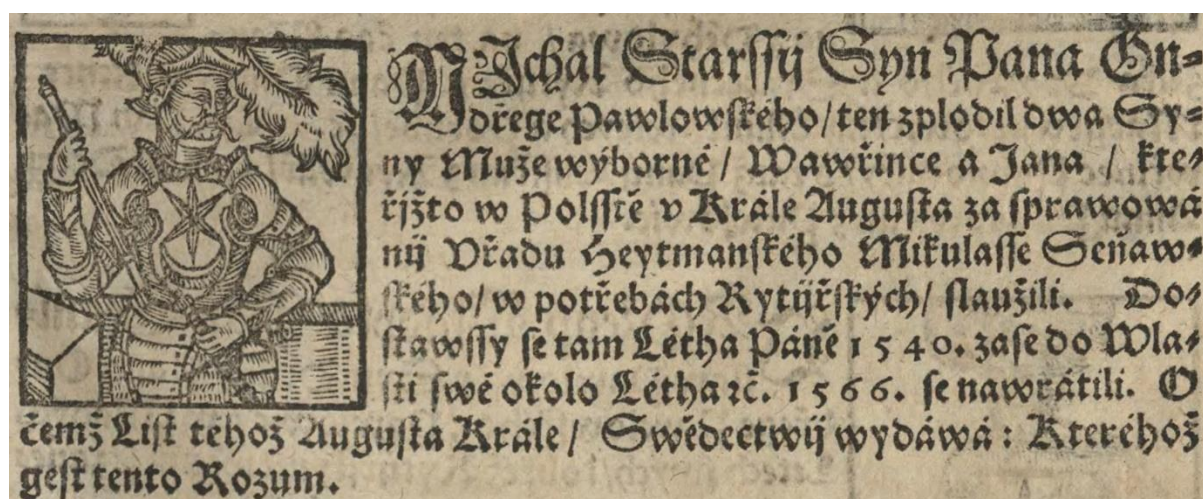 MIchal Starſſij Syn Pana On⸗
dřege Pawlowſkého/ ten zplodil dwa Sy⸗
ny Muže wýborné / Wawřince a Jana / kte⸗
řjžto w Polſſtě v Krále Auguſta za ſprawowá
nij Vřadu Heytmanſkého Mikulaſſe Senaw⸗
ſkého/ w potřebách Rytijřſkých/ ſlaužili. Do⸗
ſtawſſy ſe tam Létha Páně 1540. zaſe do Wla⸗
ſti ſwé okolo Létha ꝛč. 1566. ſe nawrátili. O
čemž Liſt téhož Auguſta Krále / Swědectwij wydáwá : Kteréhož
geſt tento Rozum.